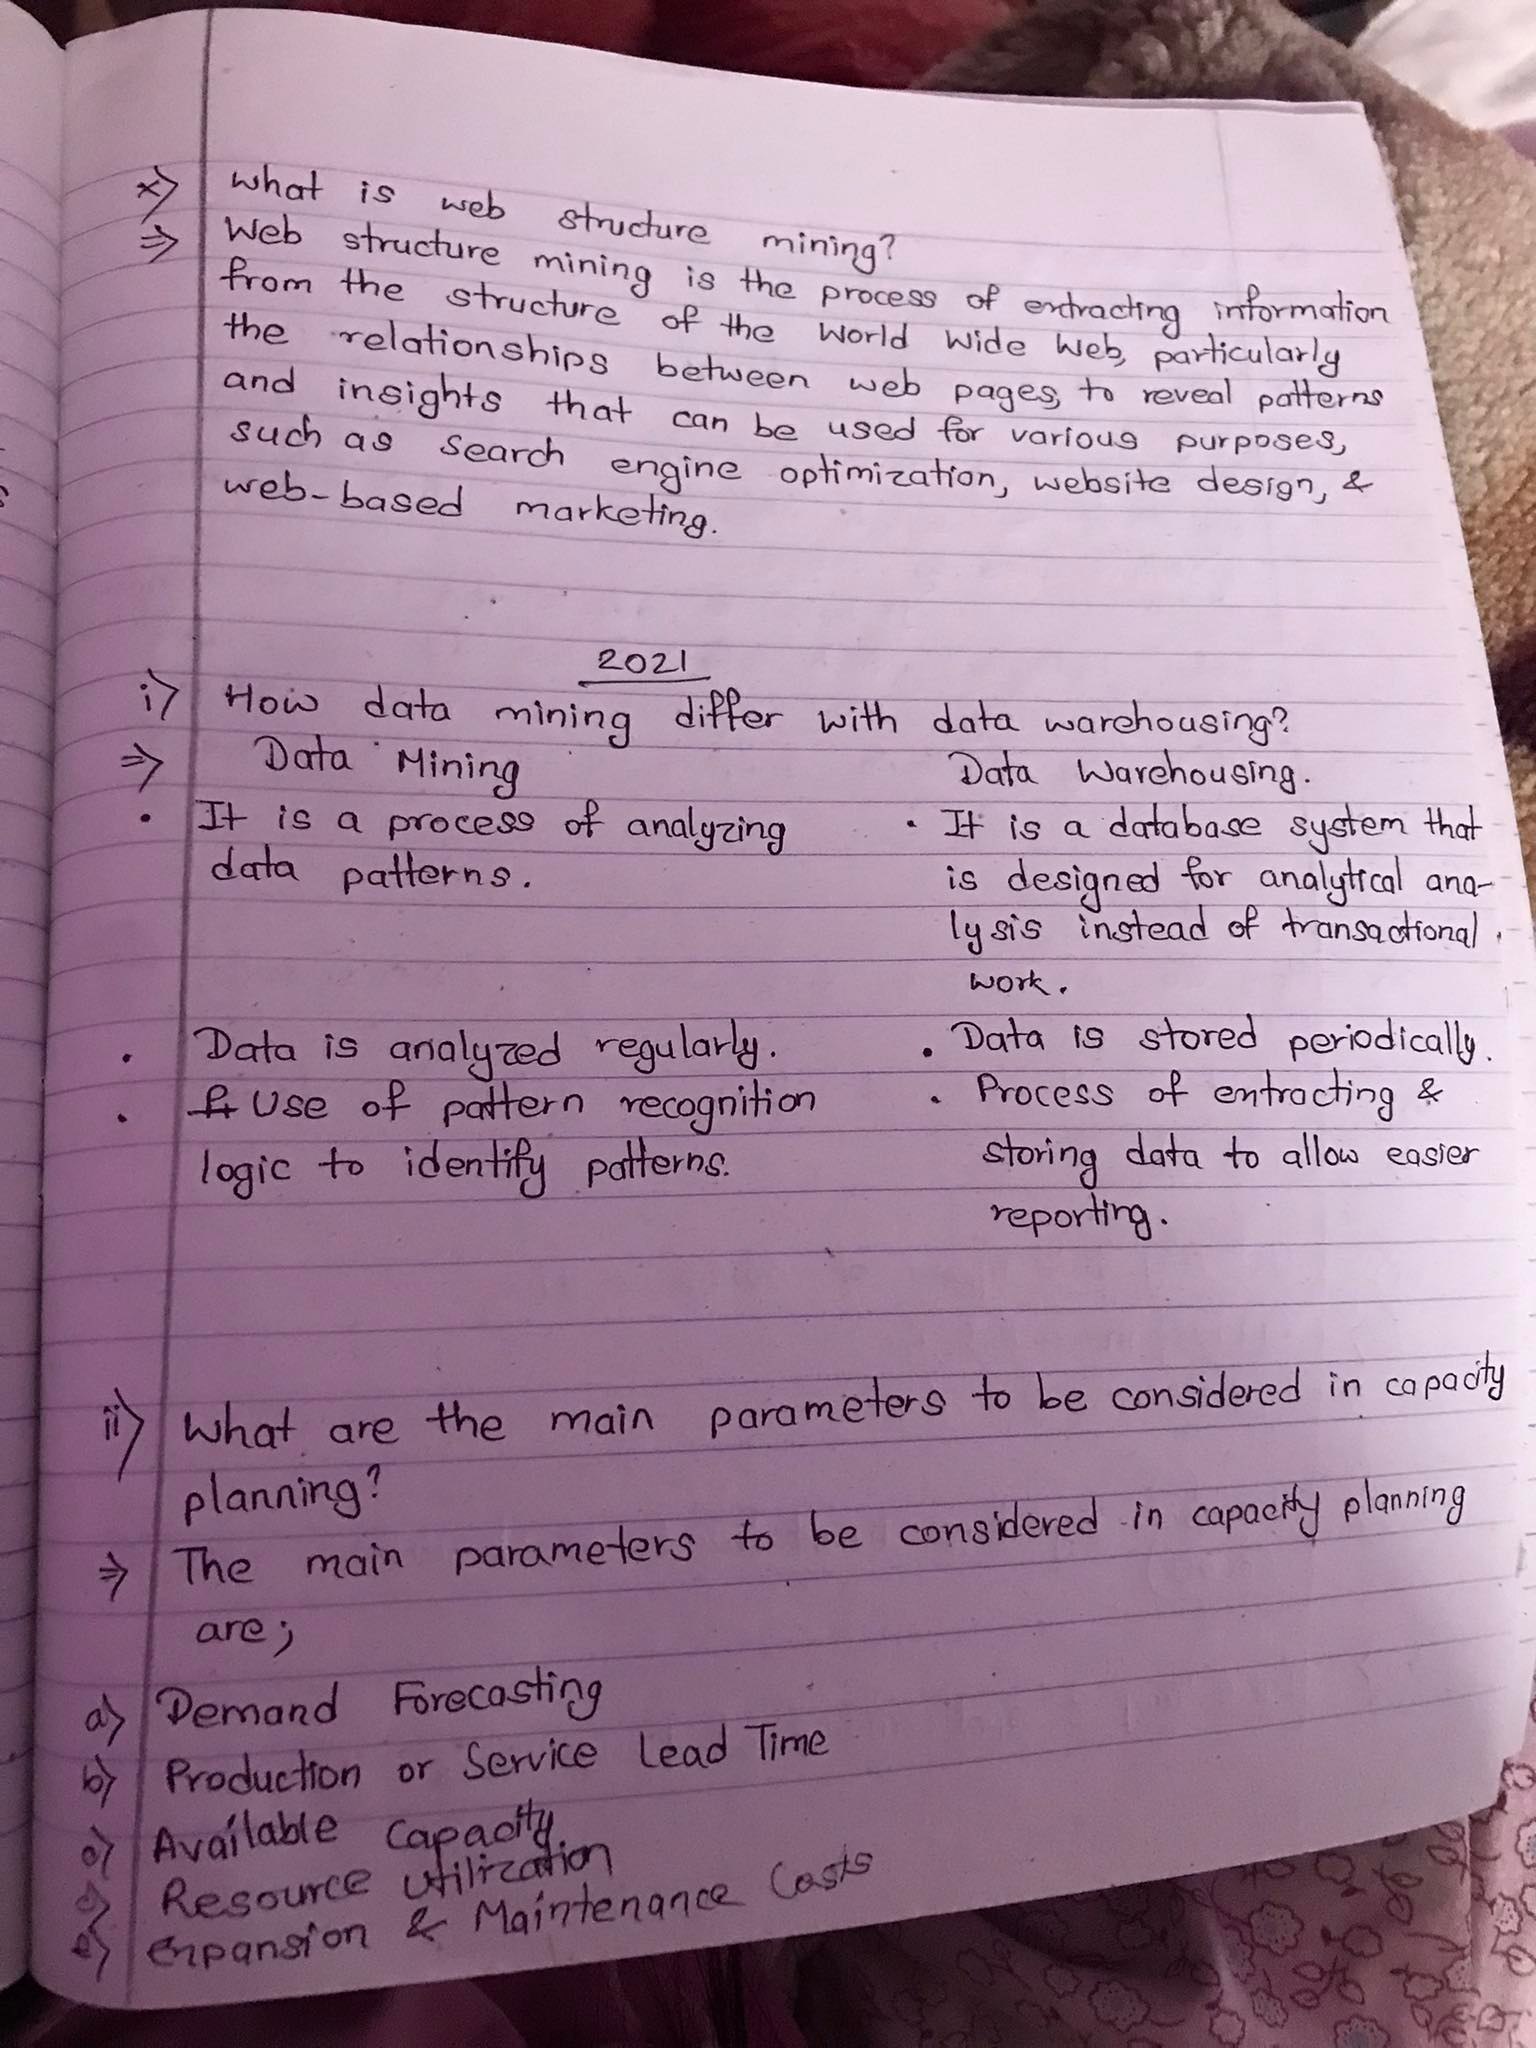 x) What is web structure mining?
⇒ Web structure mining is the process of extracting information
from the structure of the World Wide Web, particularly
the relationships between web pages, to reveal patterns
and insights that can be used for various purposes,
such as search engine optimization, website design, &
web-based marketing.
2021
i) How data mining differ with data warehousing?
⇒ Data Mining Data Warehousing.
• It is a process of analyzing • It is a database system that
data patterns. is designed for analytical ana-
lysis instead of transactional
work.
• Data is analyzed regularly. • Data is stored periodically.
• Use of pattern recognition • Process of extracting &
logic to identify patterns. storing data to allow easier
reporting.
ii) What are the main parameters to be considered in capacity
planning?
⇒ The main parameters to be considered in capacity planning
are;
a) Demand Forecasting
b) Production or Service Lead Time
c) Available Capacity
d) Resource Utilization
e) Expansion & Maintenance Costs